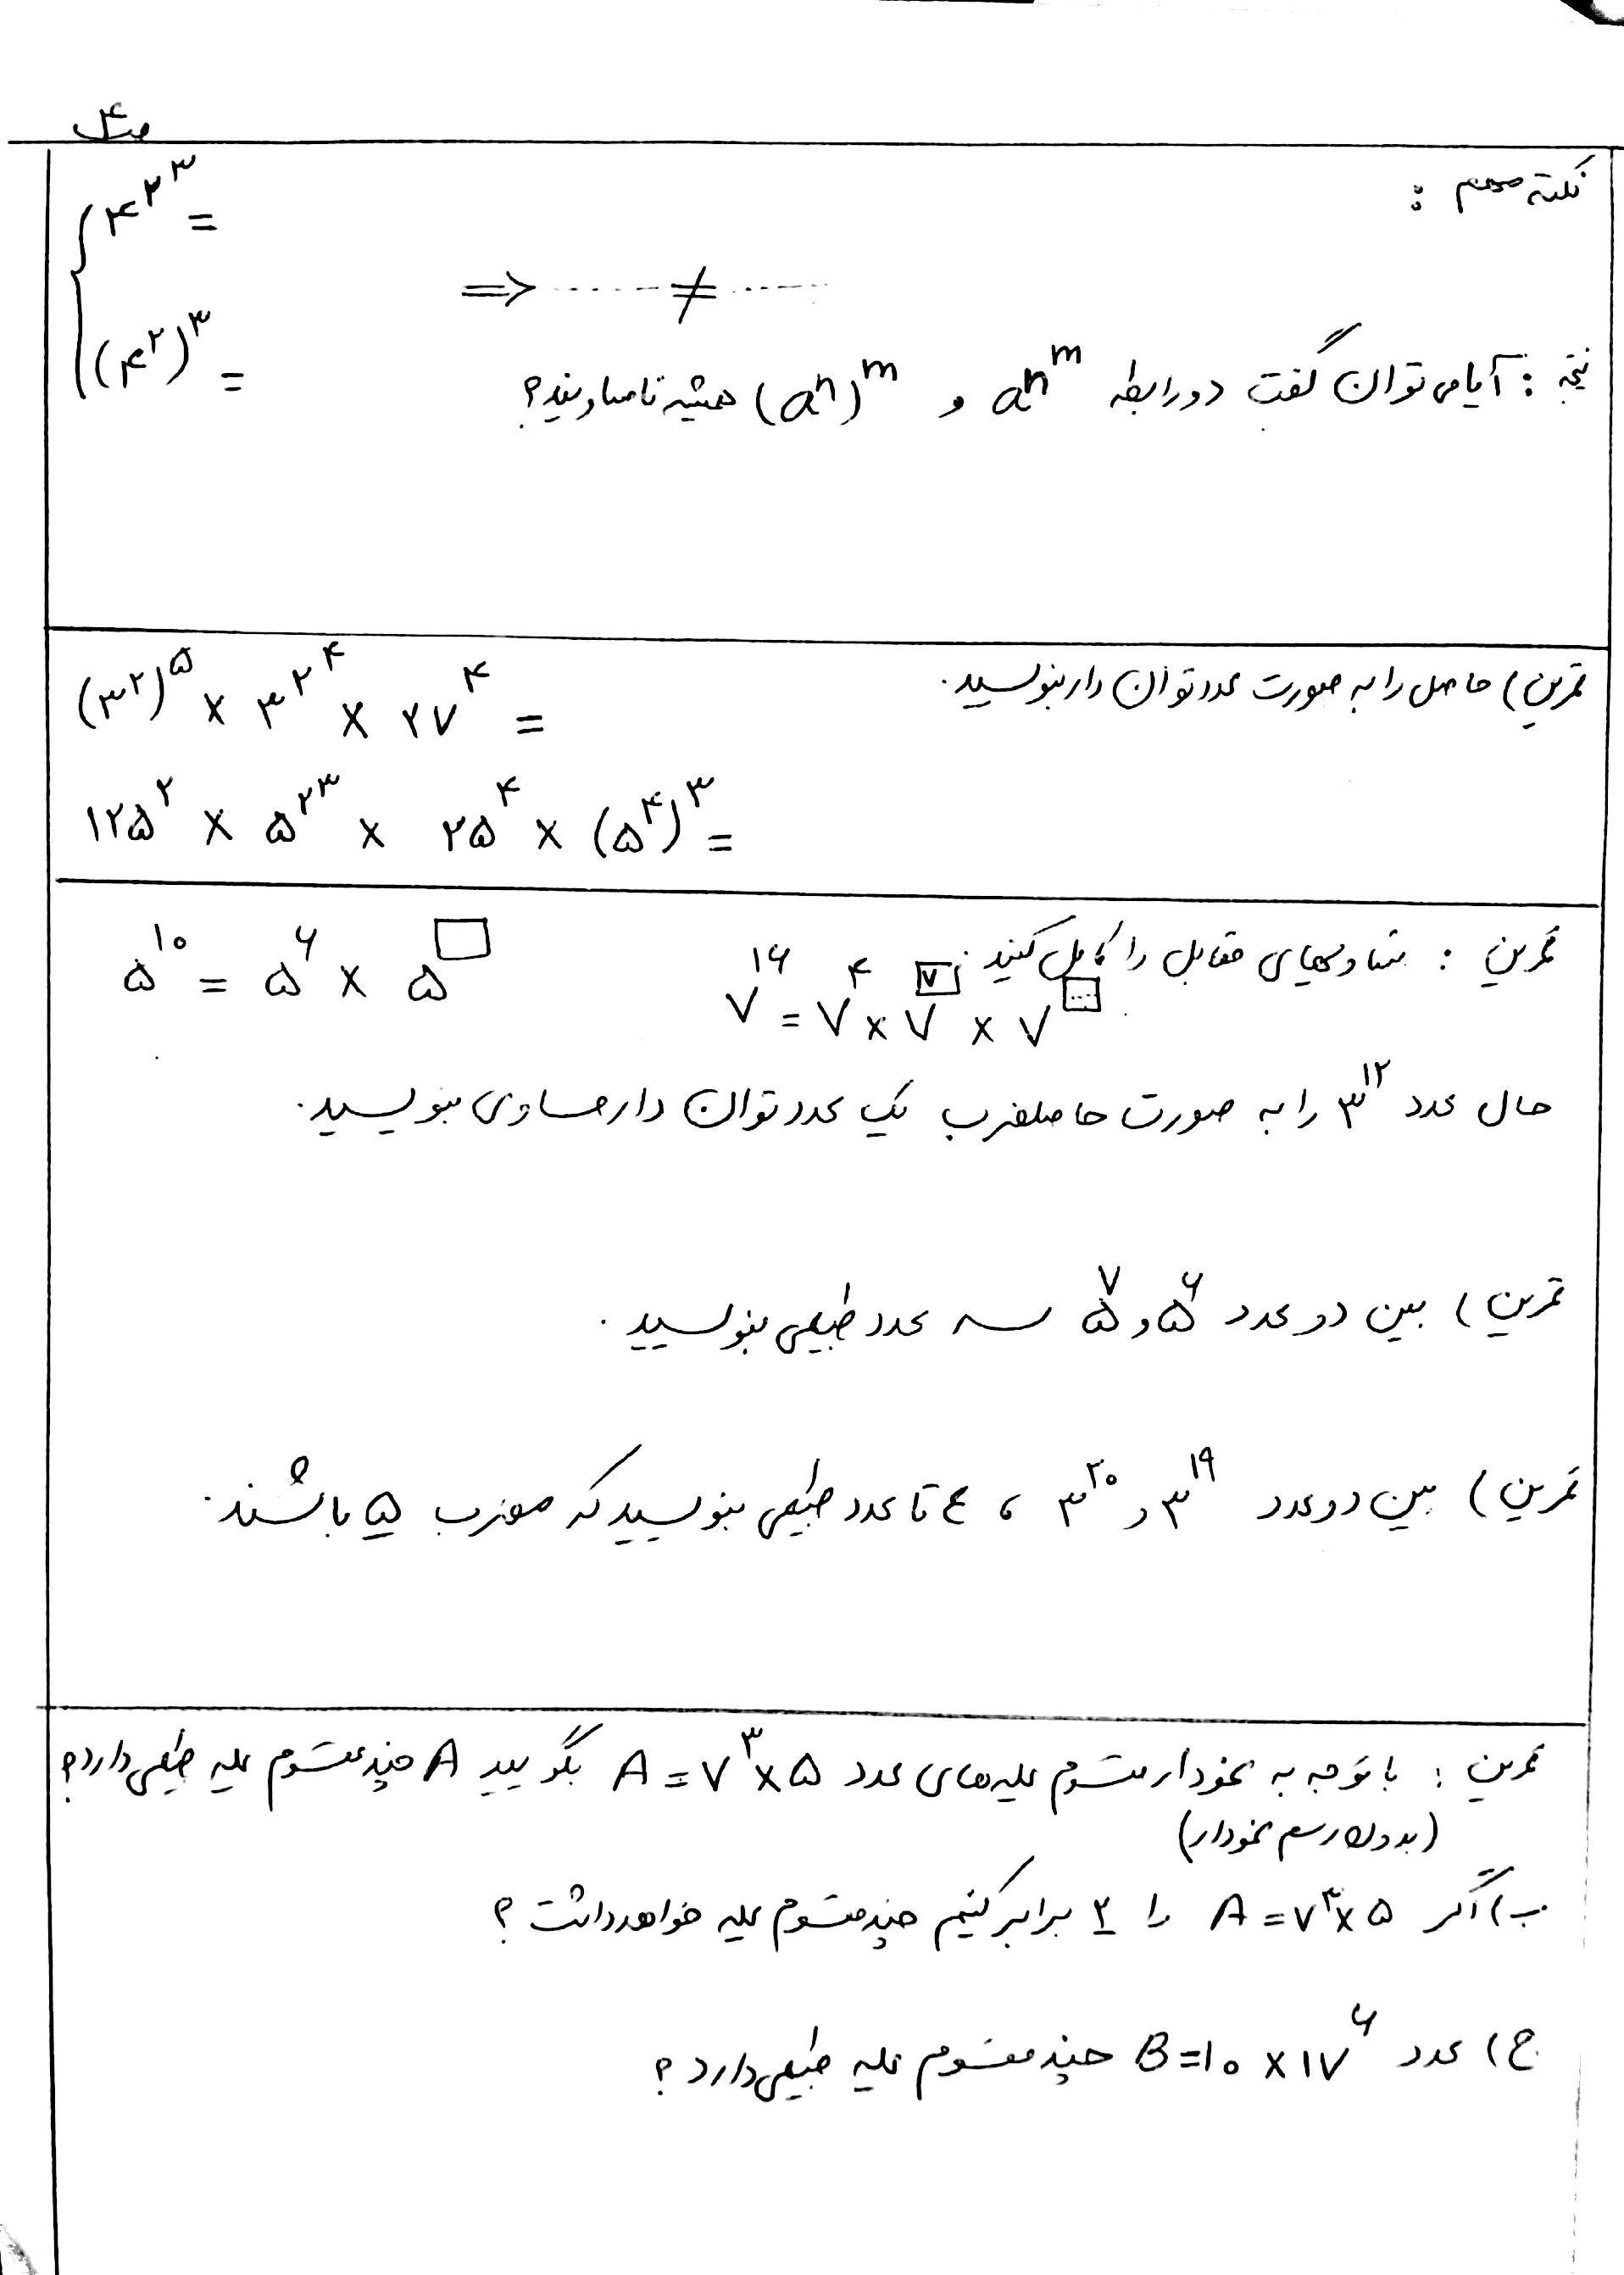 ص۴
نکته مهم :
۴^۲^۳ =
⇒ ...... ≠ ......
(۴^۲)^۳ =
نتیجه : آیا می توان گفت دو رابطه a^n^m و (a^n)^m همیشه نامساویند؟
تمرین) حاصل را به صورت عدد توان دار بنویسید.
(۳^۲)^۵ × ۳^۲^۴ × ۲۷^۴ =
۱۲۵^۲ × ۵^۲^۳ × ۲۵^۴ × (۵^۴)^۳ =
تمرین : تساویهای مقابل را کامل کنید.
۵^۱۰ = ۵^۶ × ۵^□
۷^۱۶ = ۷^۴ × ۷^۷ × ۷^...
حال عدد ۳^۱۲ را به صورت حاصلضرب یک عدد توان دار مساوی بنویسید.
تمرین) بین دو عدد ۵^۶ و ۵^۷ سه عدد طبیعی بنویسید.
تمرین) بین دو عدد ۳^۱۹ و ۳^۲۰ ، ۴ تا عدد طبیعی بنویسید که مضرب ۵ باشند.
تمرین : با توجه به نمودار مقسوم علیه های عدد A = ۷^۳ × ۵ بگویید A چند مقسوم علیه طبیعی دارد؟
(بدون رسم نمودار)
ب) اگر A = ۷^۳ × ۵ را ۲ برابر کنیم چند مقسوم علیه خواهد داشت ؟
ج) عدد B = ۱۰ × ۱۷^۶ چند مقسوم علیه طبیعی دارد ؟